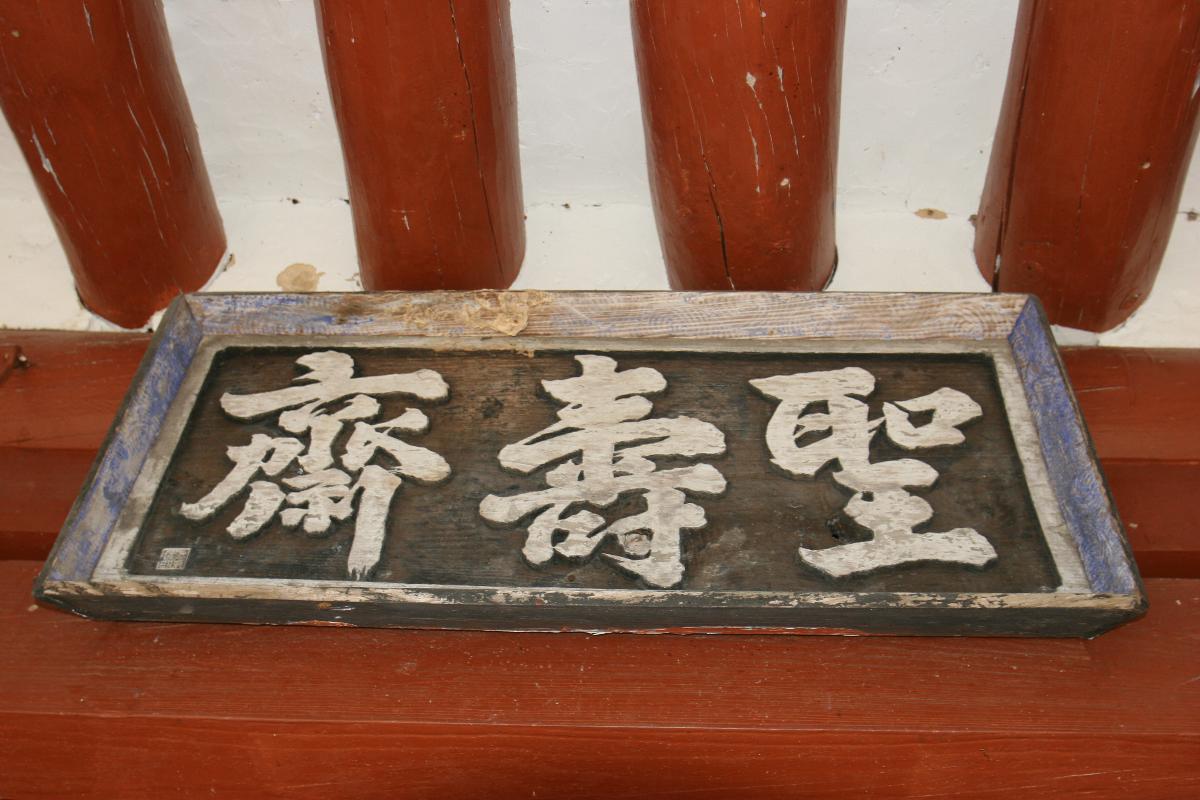 聖壽齋